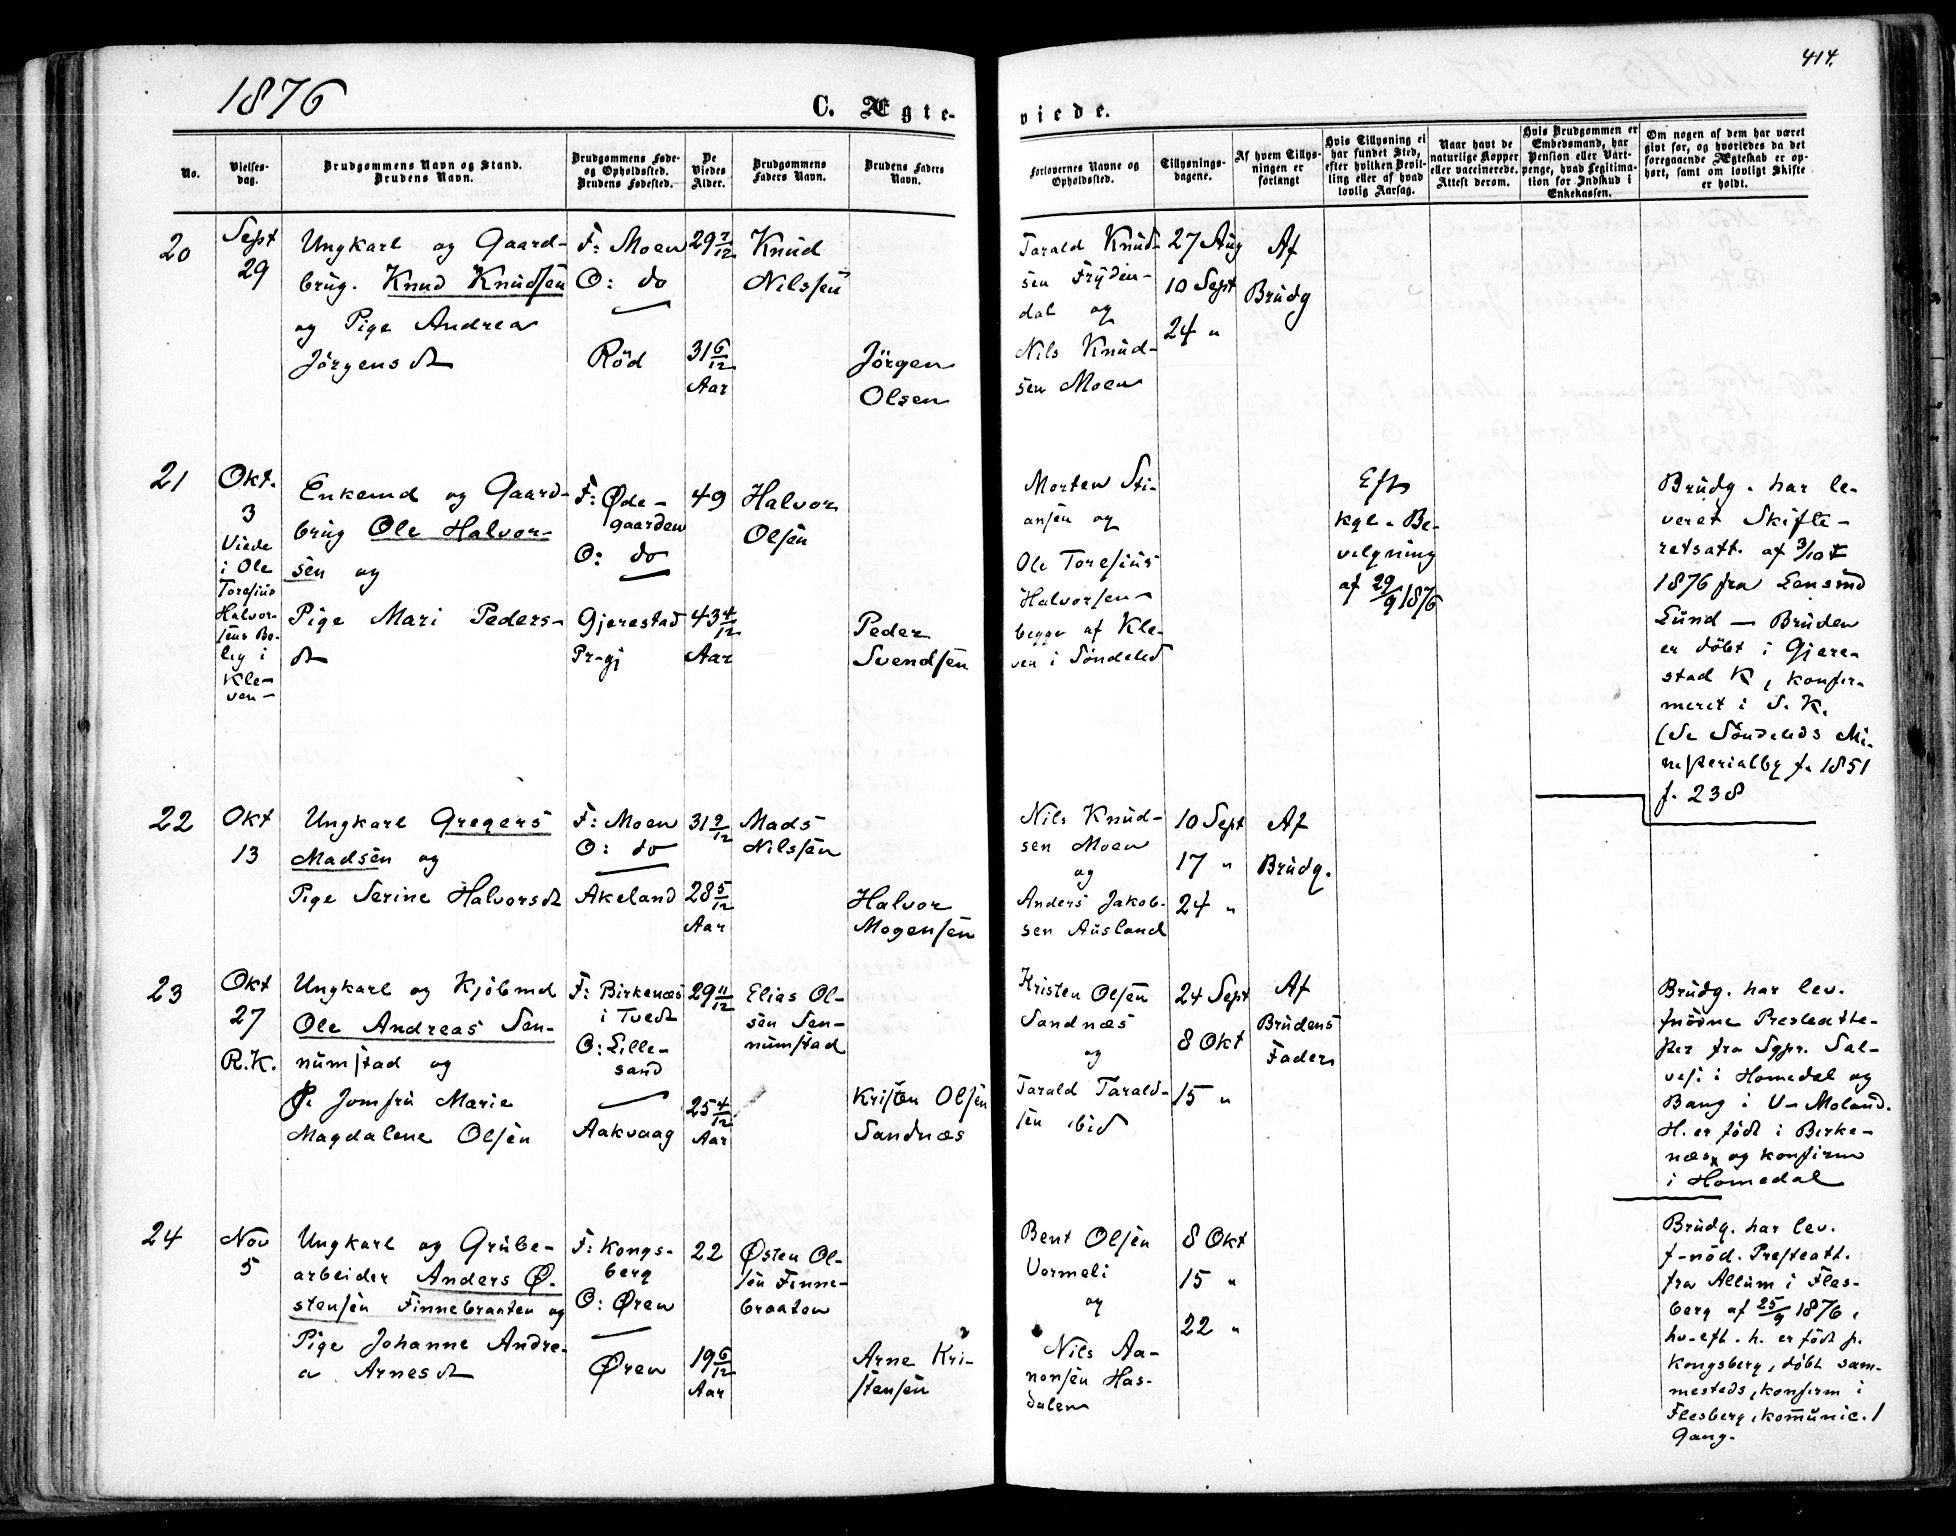 1876
C. Ægte-
viede.
414.
No.
Vielses-
dag.
Brudgommens Navn og Stand.
Brudens Navn.
Brudgommens Føde-
og Opholdssted.
Brudens Fødested.
De
Viedes
Alder.
Brudgommens
Faders Navn.
Brudens Faders
Navn.
Forlovernes Navne og
Opholdssted.
Tillysnings-
dagene.
Af hvem Tillys-
ningen er
forlangt
Hvis Tillysning ei
har fundet Sted,
efter hvilken Bevil-
ling eller af hvad
lovlig Aarsag.
Naar havt de
naturlige Kopper
eller vaccinerede.
Attest derom.
Hvis Brudgommen er
Embedsmand, har
Pension eller Vart-
penge, hvad Legitima-
tion for Indskud i
Enkekassen.
Om nogen af dem har været
givt før, og hvorledes da det
foregaaende Ægteskab er op-
hørt, samt om lovligt Skifte
er holdt.
20
Sept
29
Ungkarl og Gaard-
brug. Knud Knudsen
og Pige Andrea
Jörgensdt
F: Moen
O: do
Röd
29 7/12
31 6/12
Aar
Knud
Nilssen
Jörgen
Olsen
Tarald Knud-
sen Fryden-
dal og
Nils Knud-
sen Moen
27 Aug
10 Sept
24 "
Af
Brudg
21
Okt.
3
Viede
i Ole
Toresius
Halvor-
sens Bo-
lig i
Kle-
ven-
Enkemd og Gaard-
brug Ole Halvor-
sen og
Pige Mari Peders-
dt
F: Øde-
gaarden
O: do
Gjerestad
Pr-gj
49
43 4/12
Aar
Halvor
Olsen
Peder
Svendsen
Morten Sti-
ansen og
Ole Toresius
Halvorsen-
begge af Kle-
ven i Söndeled
Eft
kgl. Be-
vilgning
af 29/9 1876
Brudg. har le-
veret Skifte-
retsatt. af 3/10
1876 fra Lensmd
Lund — Bruden
er döbt i Gjere-
stad K, konfir-
meret i S. K.
(Se Söndeleds Mi-
nisterialbg f. 1851
f. 238
22
Okt
13
Ungkarl Gregers
Madsen og
Pige Serine Halvorsdt
F: Moen
O: do
Akeland
31 9/12
28 5/12
Aar
Mads
Nilssen
Halvor
Mogensen
Nils Knud-
sen Moen
og
Anders Jakob-
sen Ausland
10 Sept
17 "
24 "
Af
Brudg.
23
Okt
27
R.K.
Ungkarl og Kjöbmd
Ole Andreas Sen-
numstad og
P. Jomfru Marie
Magdalene Olsen
F: Birkenæs
i Tvedt
O: Lille-
sand
Aakvaag
29 11/12
25 4/12
Aar
Elias Ol-
sen Sen-
numstad
Kristen Olsen
Sandnæs
Kristen Olsen
Sandnæs
og
Tarald Tarald-
sen ibid
24 Sept
8 Okt
15 "
Af
Brudens
Fader
Brudg. har lev.
fnödne Presteatte-
ster fra Sgpr. Sal-
vesi i Homedal og
Bang i V- Moland.
H. er födt i Birke-
næs og konfirm
i Homedal
24
Nov
5
Ungkarl og Grube-
arbeider Anders Ø-
stensen Finnebraaten og
Pige Johanne Andre-
a Arnesdt
F: Kongs-
berg
O: Øren
Øren
22
19 6/12
Aar
Østen Ol-
sen Finne-
braaten
Arne Kri-
stensen
Bent Olsen
Vormeli
og
Nils Aa-
nonsen Has-
dalen
8 Okt
15 "
22 "
Brudg. har lev.
f-nöd. Presteatt.
fra Allum i Fles-
berg af 25/9 1876,
hv-eft. h. er födt p.
Kongsberg, döbt sam-
mesteds, konfirm i
Flesberg, kommunic. 1
Gang.